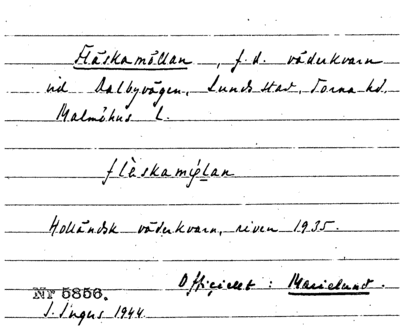 Fläskamöllan, f.d. väderkvarn
vid Dalbyvägen, Lunds stad, Torna hd.
Malmöhus l.
flɛskamylan
Holländsk väderkvarn, riven 1935.
Officiellt: Marielund.
Nr 5856.
S. Ingers 1944